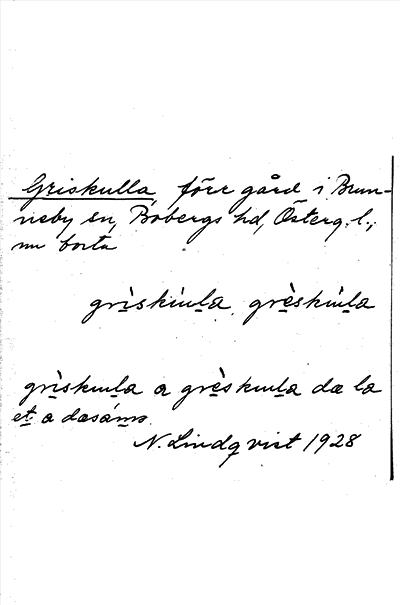 Griskulla, förr gård i Brun-
neby sn, Bobergs hd, Österg. l.;
nu borta
grìskúɯla, grèskúɯla
grìskɯla a grèskɯla dæ la
et a dæsáma.
N. Lindqvist 1928